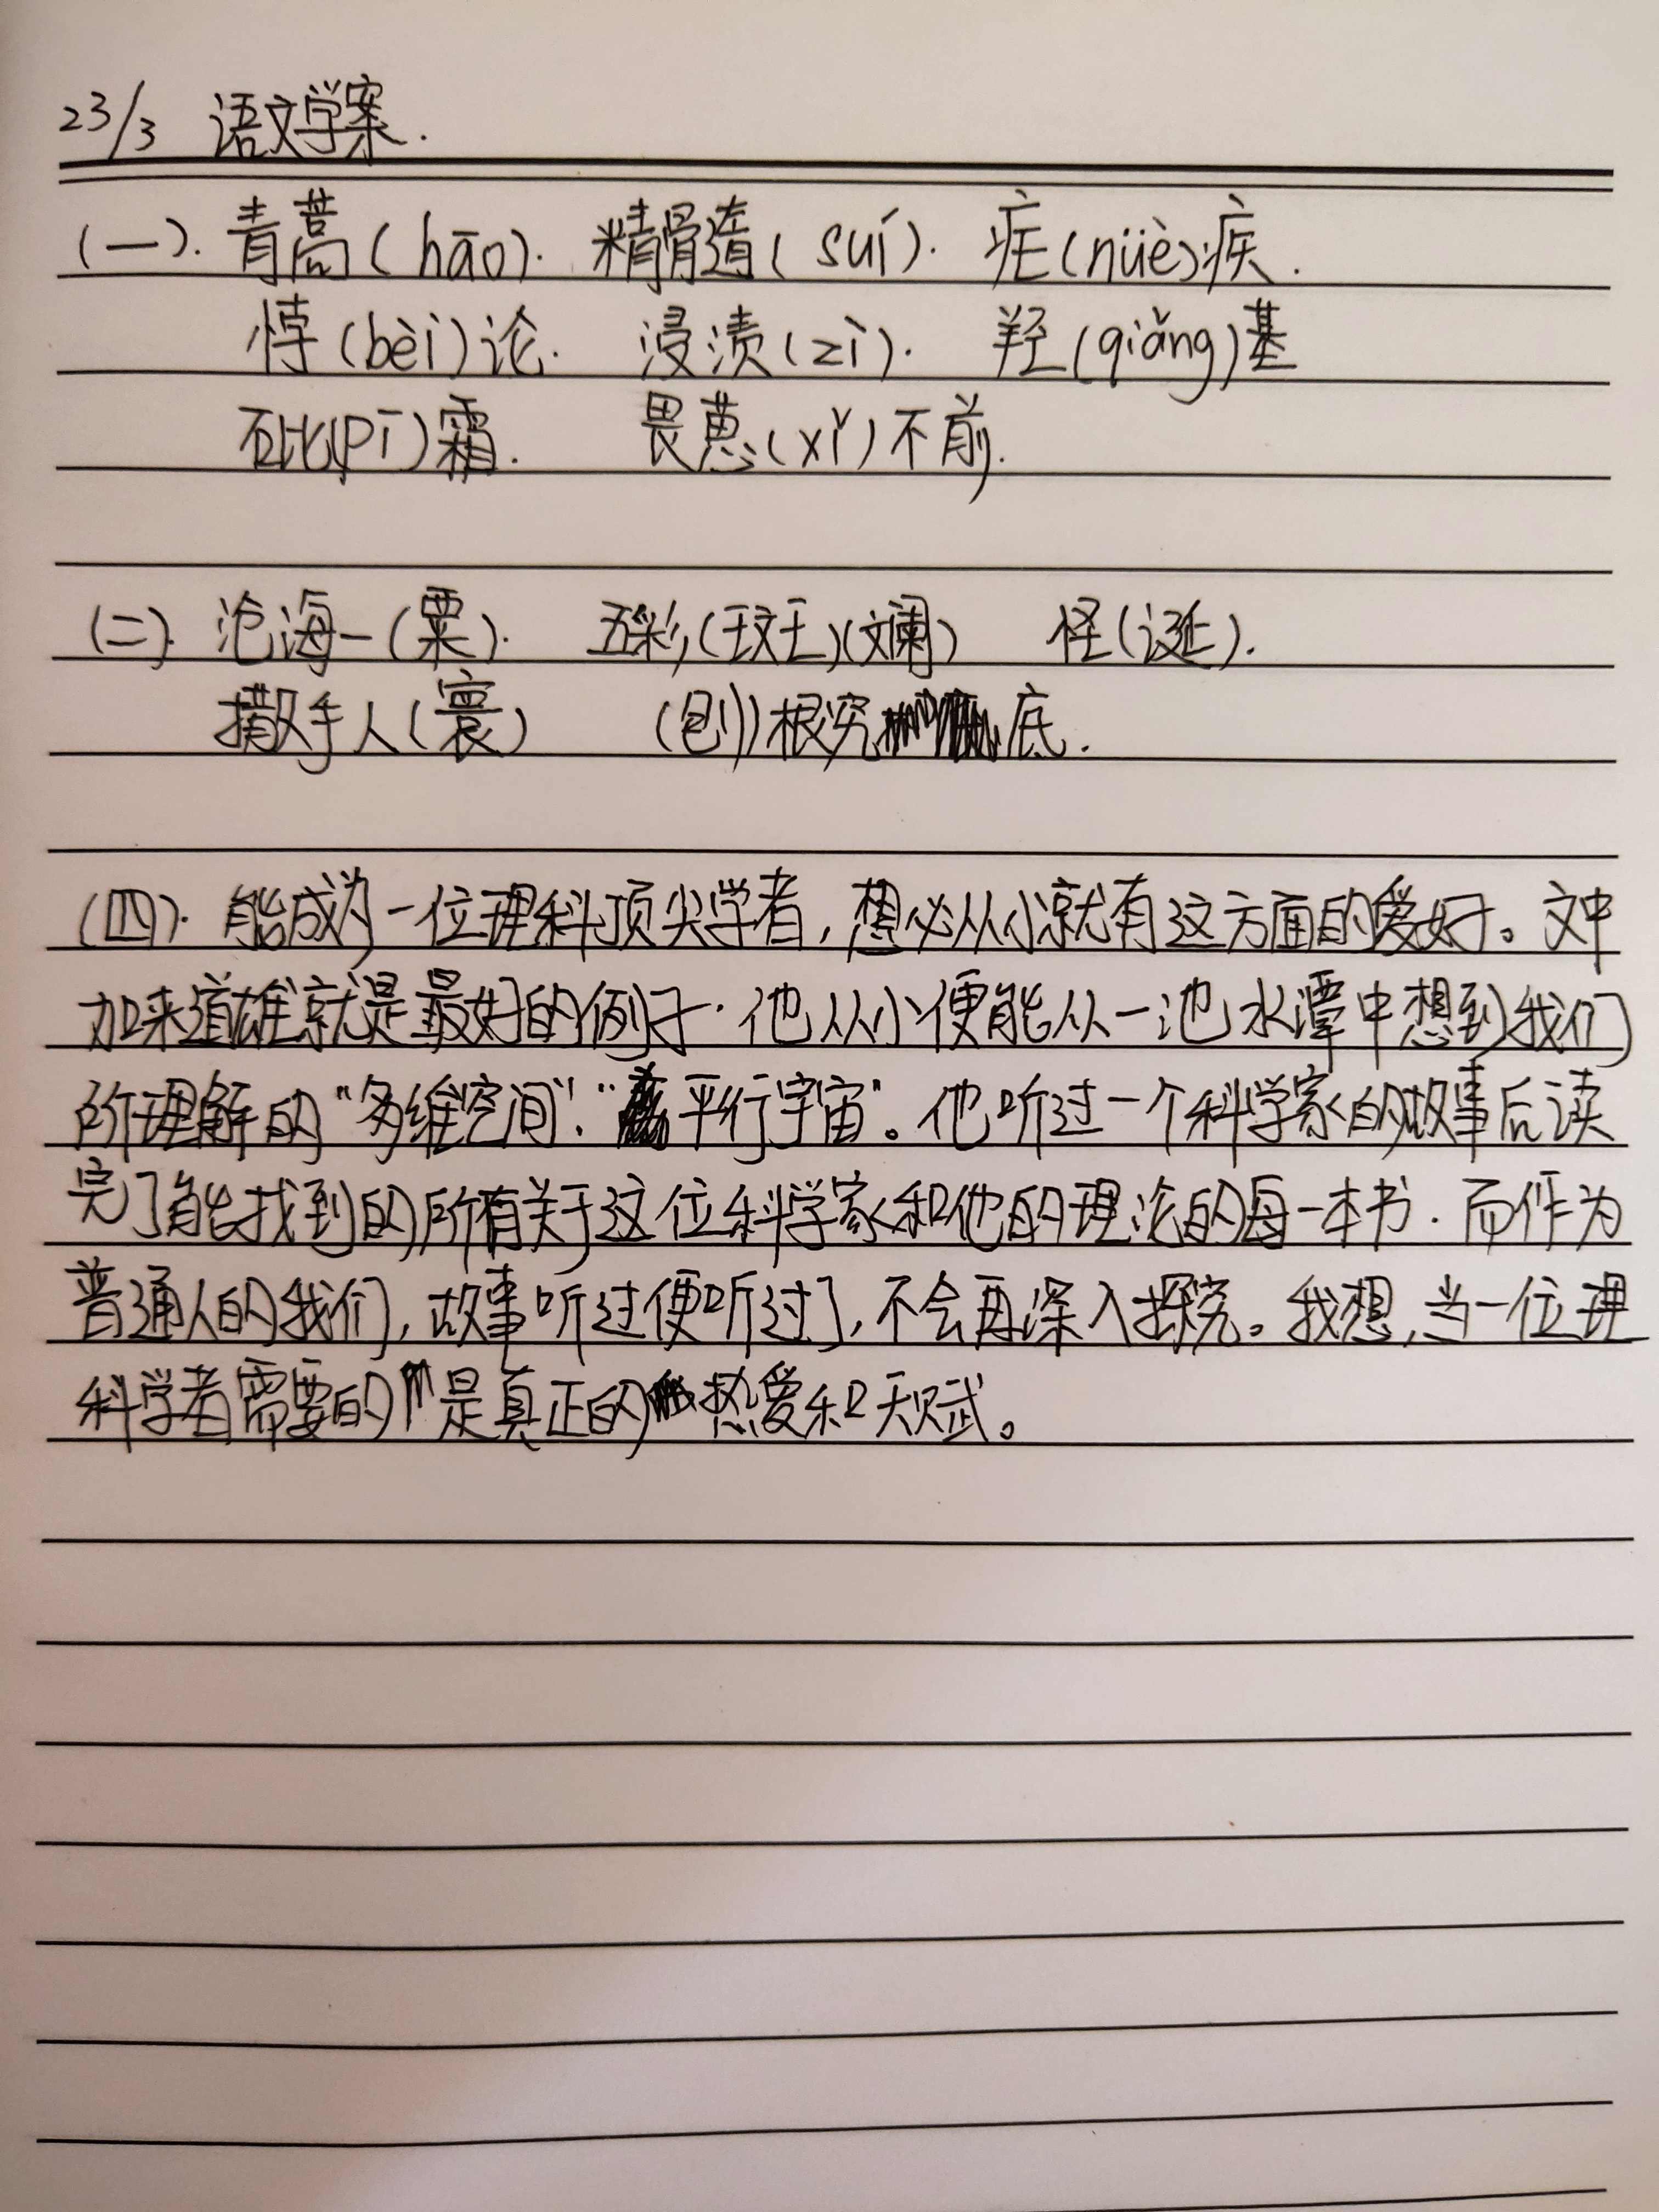 23/3 语文学案.
(一). 青蒿(hāo). 精髓(suí). 疟(nüè)疾.
悖(bèi)论. 浸渍(zì). 羟(qiǎng)基
砒(pī)霜. 畏葸(xǐ)不前.
(二). 沧海一(粟). 五彩(斑)(斓) 怪(诞).
撒手人(寰) (刨)根究底.
(四). 能成为一位理科顶尖学者,想必从小就有这方面的爱好。文中
加来道雄就是最好的例子.他从小便能从一池水潭中想到我们
所理解的“多维空间”.“平行宇宙”。他听过一个科学家的故事后读
完了能找到的所有关于这位科学家和他的理论的每一本书.而作为
普通人的我们,故事听过便听过了,不会再深入探究。我想,当一位理
科学者需要的是真正的热爱和天赋。